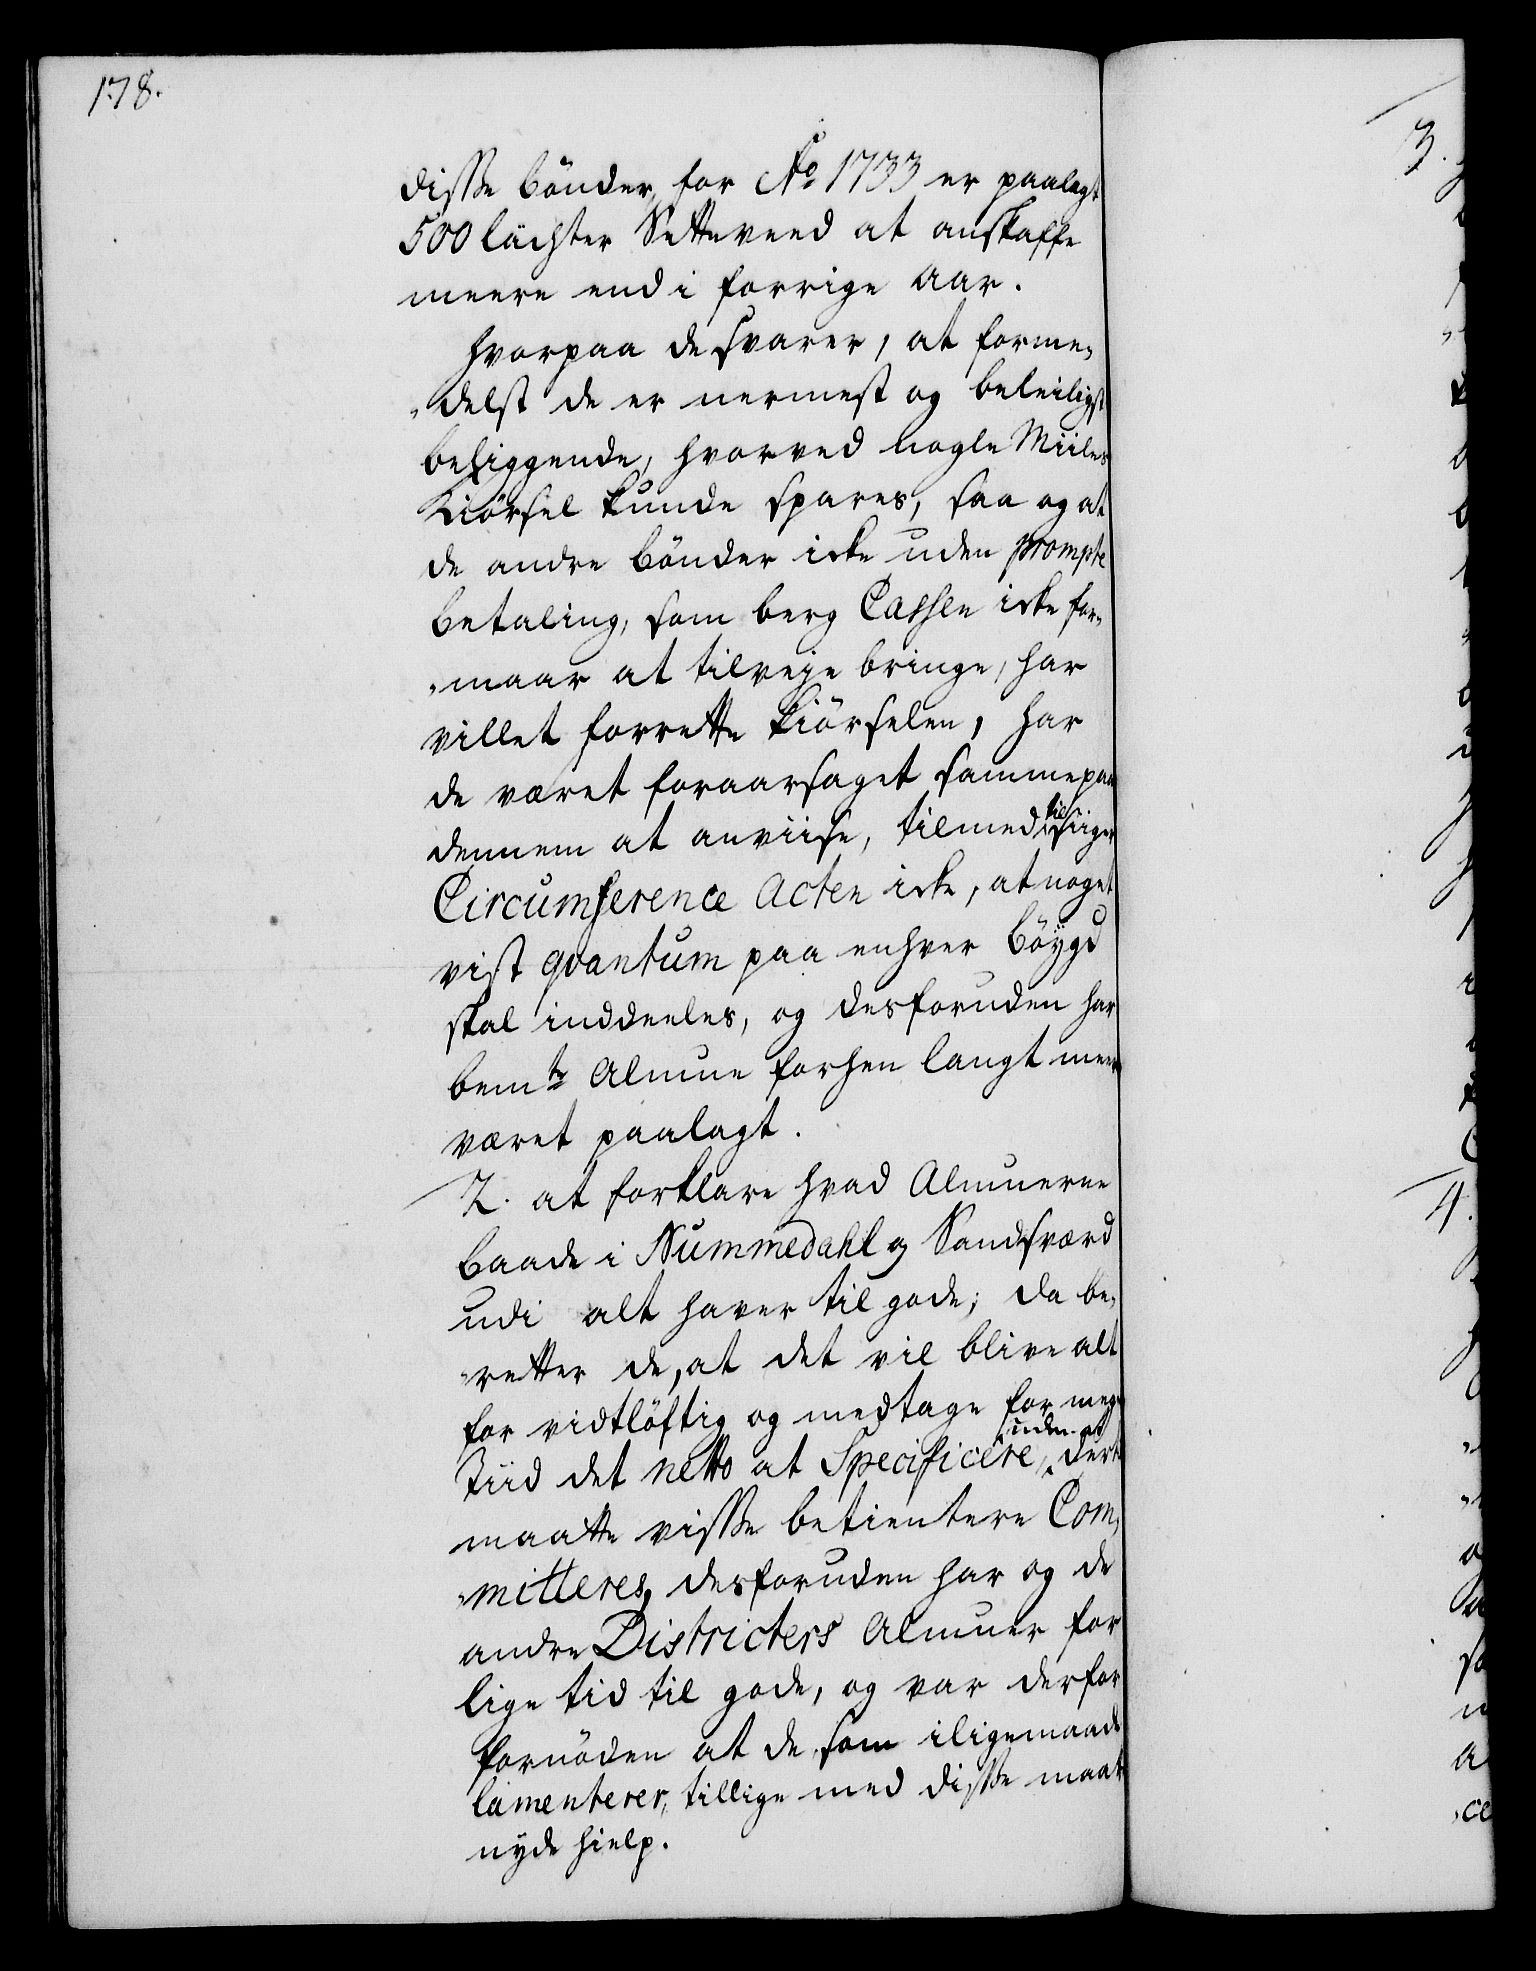 178.
disse bönder, for Ao 1733 er paalagt
500 lächter Setteveed at anskaffe
meere end i forrige Aar.
hvorpaa de svarer, at forme-
-delst de er nermest og beleiligst
beliggende, hvorved nogle Miiles
Kiörsel kunde spares, saa og at
de andre bönder icke uden prompte
betaling, som berg Cassen icke for-
-maar at tilveje bringe, har
villet forrette kiörselen, har
de været foraarsaget samme paa
dennem at anviise, tilmed tilsiiger
Circumference Acten icke, at noget
vist qvantum paa enhver böygd
skal inddeeles, og desforuden har
bemte Almue forhen langt meere
været paalagt.
2. at forklare hvad Almuerne
baade i Nummedahl og Sandsværd
udi alt haver til gode; da be-
-retter de, at det vil blive alt
for vidtlöftig og medtage for megen
Tiid det netto at Specificere, uden at dertil
maatte visse betientere Com-
-mitteres, desforuden har og de
andre Districters Almuer for
lige tid til gode, og var derfor
fornöden at de, som iligemaade
lamenterer, tillige med disse maat
nyde hielp.
3.
4.